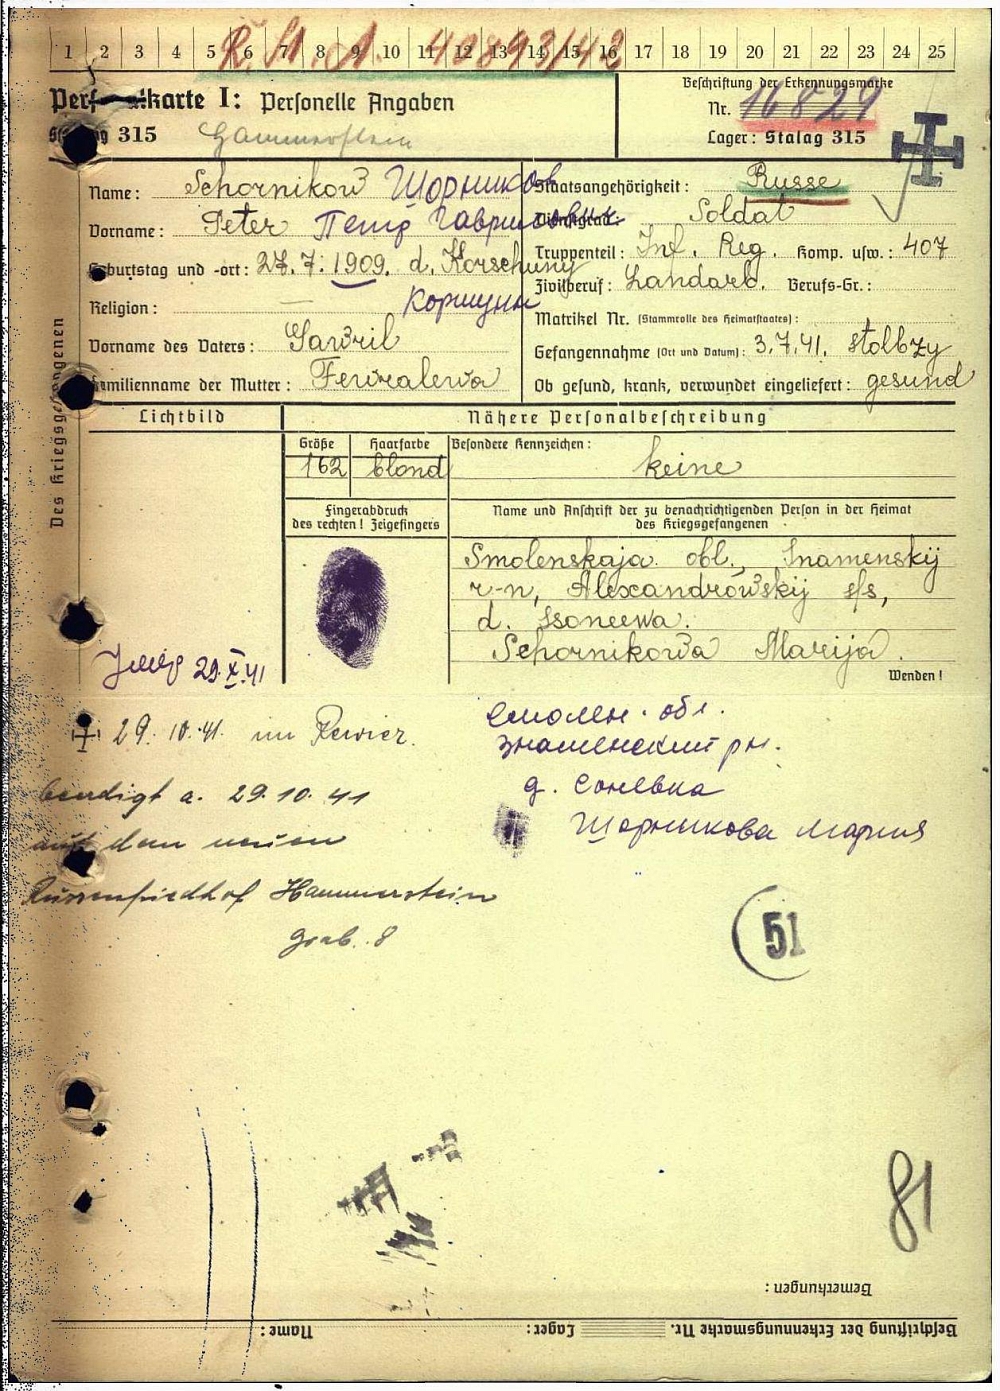 R. St. A. 40893/42
1 2 3 4 5 6 7 8 9 10 11 12 13 14 15 16 17 18 19 20 21 22 23 24 25
Personalkarte I: Personelle Angaben
Beschriftung der Erkennungsmarke
Nr. 16829
Stalag 315 Hammerstein
Lager: Stalag 315
Des Kriegsgefangenen
Name: Schornikow Шорников
Vorname: Peter Петр Гаврилович
Geburtstag und -ort: 27.7.1909. d. Korschuny
Коршуны
Religion: —
Vorname des Vaters: Gawril
Familienname der Mutter: Fewralewa
Staatsangehörigkeit: Russe
Dienstgrad: Soldat
Truppenteil: Inf. Reg. Komp. usw.: 407
Zivilberuf: Landarb. Berufs-Gr.:
Matrikel Nr. (Stammrolle des Heimatstaates):
Gefangennahme (Ort und Datum): 3.7.41. Stolbzy
Ob gesund, krank, verwundet eingeliefert: gesund
Lichtbild
Nähere Personalbeschreibung
Größe Haarfarbe Besondere Kennzeichen:
162 blond keine
Fingerabdruck
des rechten! Zeigefingers
Name und Anschrift der zu benachrichtigenden Person in der Heimat
des Kriegsgefangenen
Smolenskaja obl., Snamenskij
r-n, Alexandrowskij s/s,
d. Ssoneewa.
Schornikowa Marija.
Wenden!
29.X.41
29.10.41. im Revier.
beerdigt a. 29.10.41
auf dem neuen
Russenfriedhof Hammerstein
Grab. 8
Смолен. обл.
Знаменский рн.
д. Соневка
Шорникова Мария
51
81
Bemerkungen:
Beschriftung der Erkennungsmarke Nr. Lager: Name: